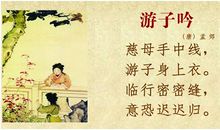 游子吟
（唐）孟郊
慈母手中线，
游子身上衣。
临行密密缝，
意恐迟迟归。